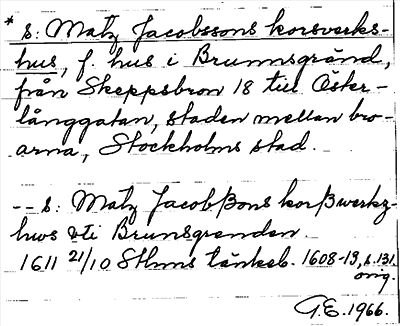 * s: Matz Jacobssons korsverks-
hus, f. hus i Brunnsgränd,
från Skeppsbron 18 till Öster-
långgatan, staden mellan bro-
arna, Stockholms stad.
-- s: Matz Jacobßons korßwerkz-
hws uti Brunsgrenden
1611 21/10 Sthms tänkeb. 1608-13, s. 131.
orig.
G.E. 1966.